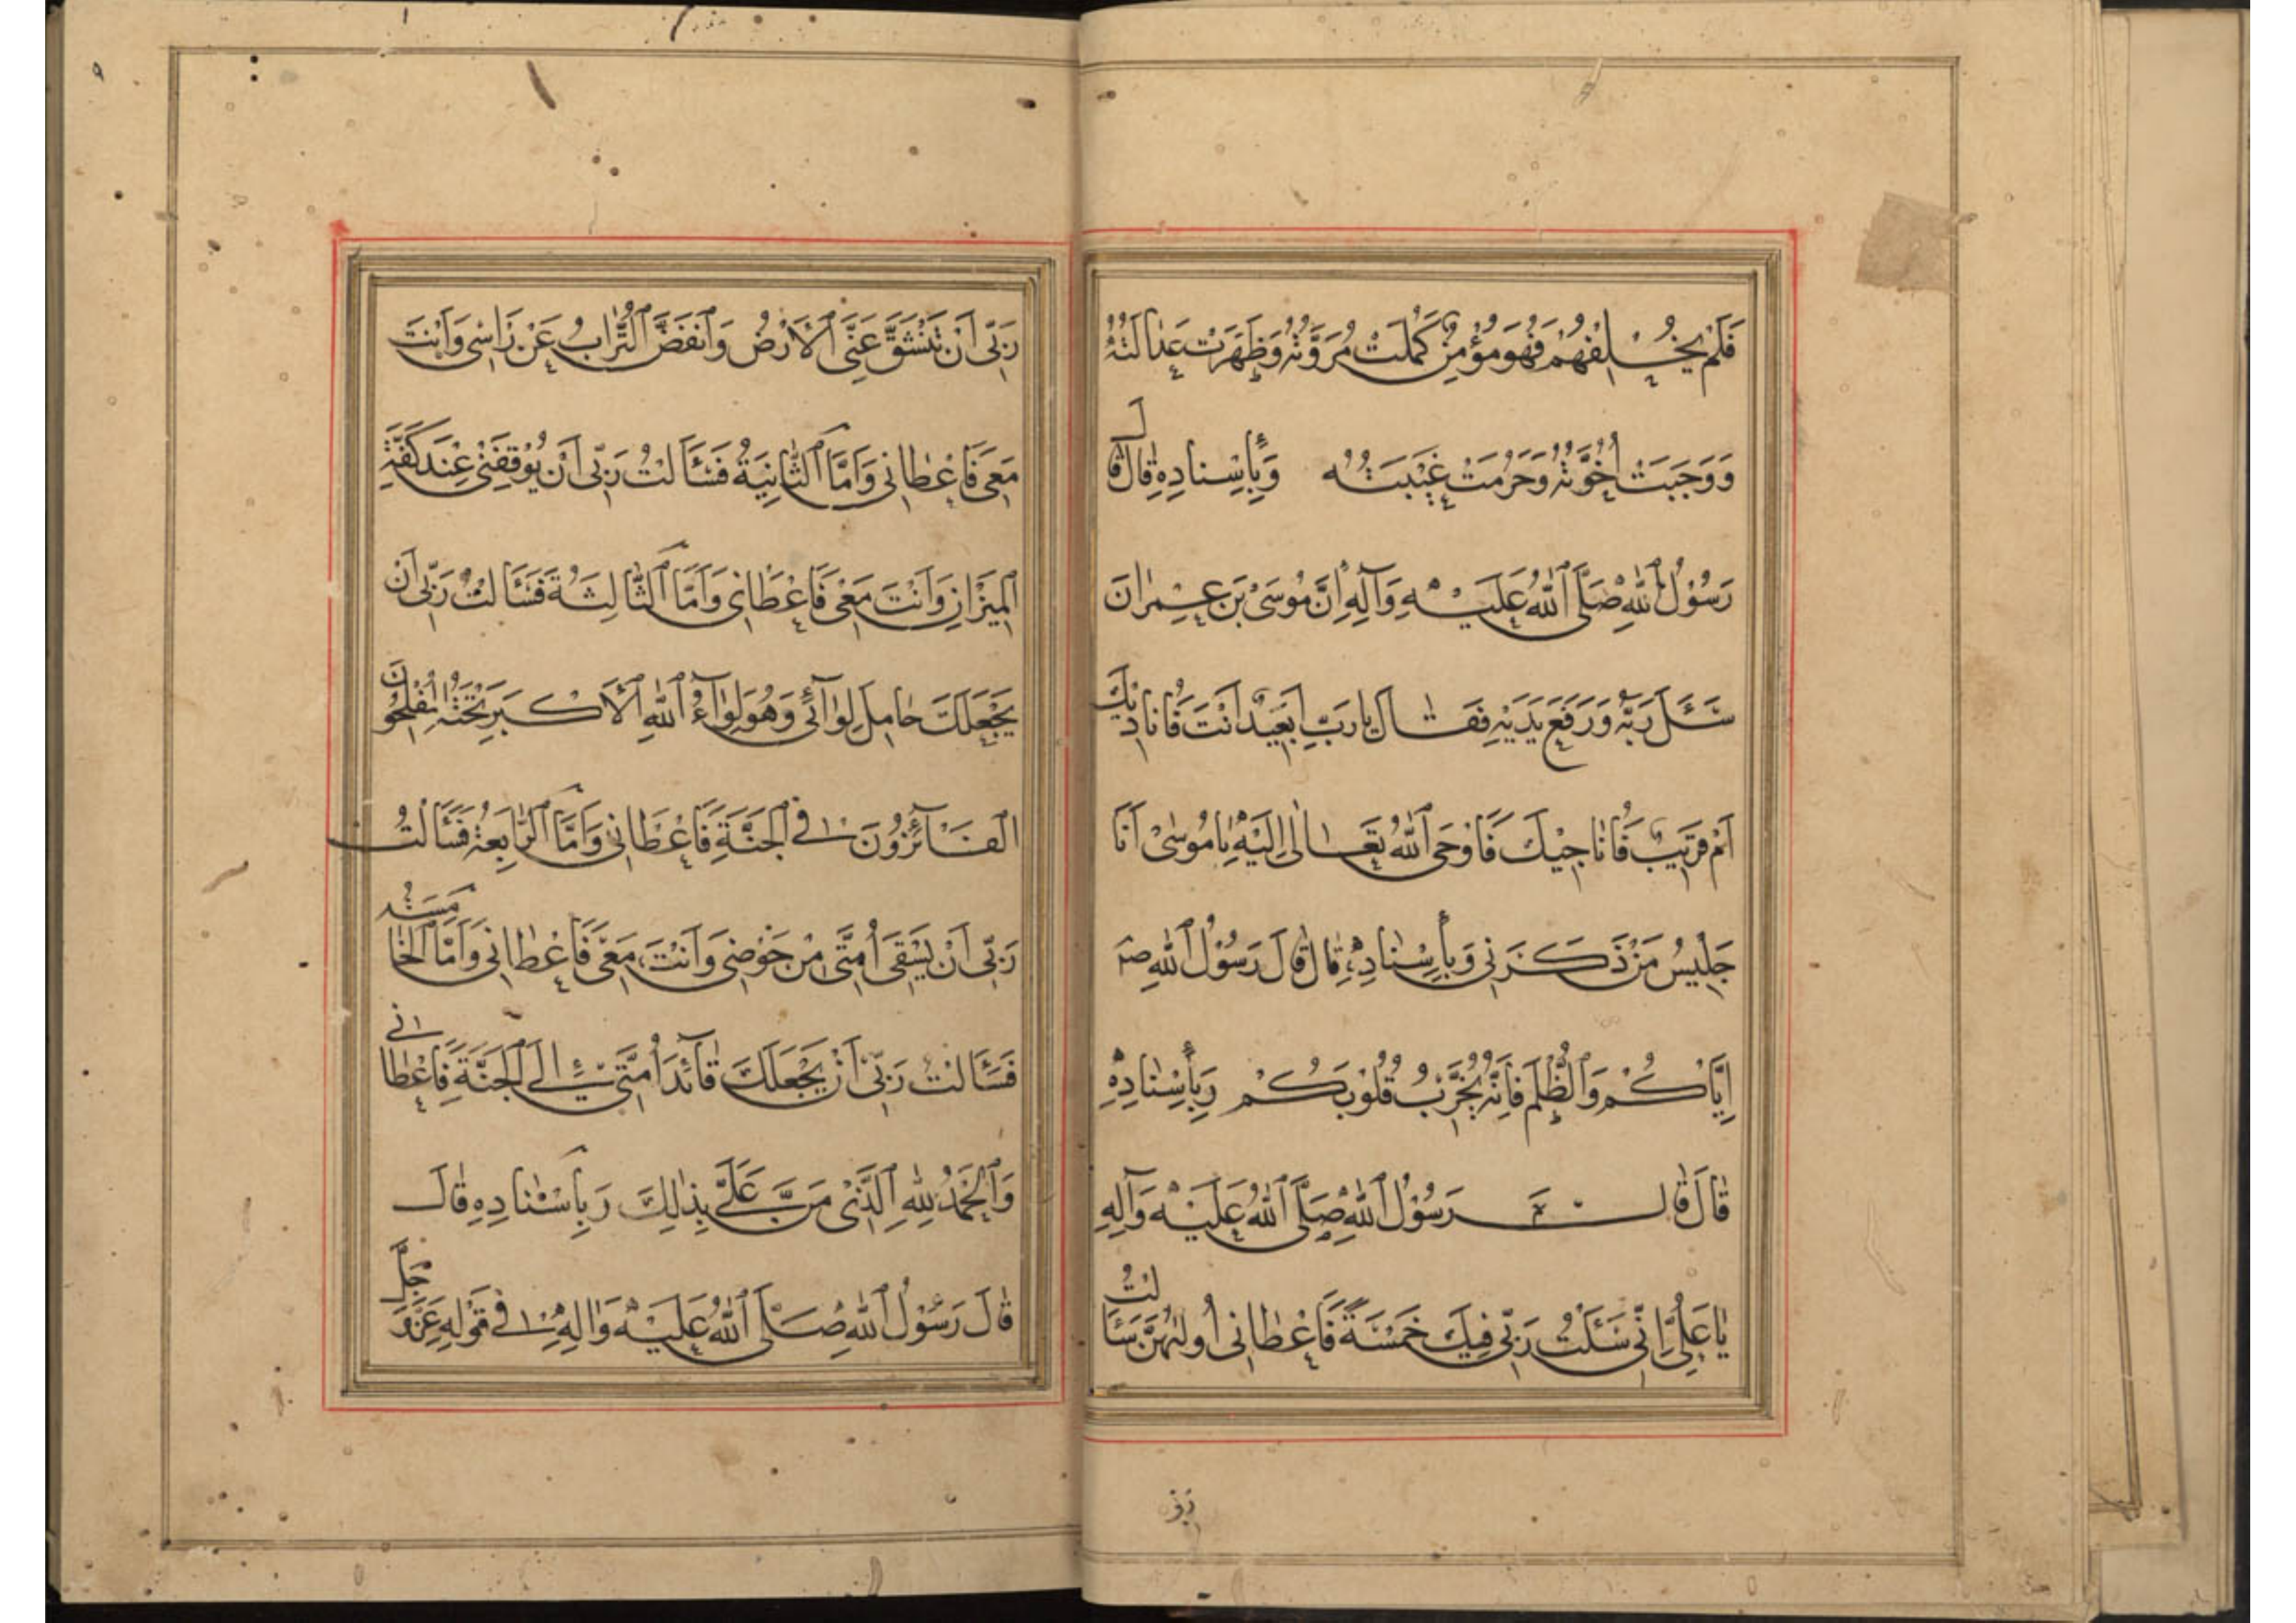 فَلَمْ يُخْلِفْهُمْ فَهُوَ مُؤْمِنٌ كَمُلَتْ مُرَوَّتُهُ وَظَهَرَتْ عَدالَتُهُ
وَوَجَبَتْ اُخُوَّتُهُ وَحَرُمَتْ غَيْبَتُهُ وَبِأِسْنادِهِ قالَ قالَ
رَسُوْلُ اللهِ صَلَّى اللهُ عَلَيْهِ وَآلِهِ اِنَّ مُوسَىْ بْنَ عِمْرانَ
سَئَلَ رَبَّهُ وَرَفَعَ يَدَيْهِ فَقالَ يارَبِّ اَبَعِيْدٌ اَنْتَ فَاُنادِيْكَ
اَمْ قَرِيْبٌ فَاُناجِيْكَ فَاَوْحَى اللهُ تَعالىٰ اِلَيْهِ يامُوسىْ اَنَا
جَلِيْسُ مَنْ ذَكَرَنِي وَبِأِسْنادِهِ قالَ قالَ رَسُوْلُ اللهِ صَ
اِيَّاكُمْ وَالظُّلْمَ فَاِنَّهُ يُخَرِّبُ قُلُوْبَكُمْ وَبِأِسْنادِهِ
قالَ قالَ رَسُوْلُ اللهِ صَلَّى اللهُ عَلَيْهِ وَآلِهِ
ياعَلِيُّ اِنِّي سَئَلْتُ رَبِّي فِيْكَ خَمْسَةً فَاَعْطانِي اُولٰهُنَّ سَئَالْتُ
رَبِّي
رَبِّي اَنْ تَنْشَقَّ عَنِّي الْاَرْضُ وَاَنْفَضَ التُّرابُ عَنْ رَاْسِي وَاَنْتَ
مَعِي فَاَعْطانِي وَاَمَّا الثَّانِيَةُ فَسَئَالْتُ رَبِّي اَنْ يُوْقِفَنِي عِنْدَ كَفَّةِ
الْمِيْزَانِ وَاَنْتَ مَعِي فَاَعْطانِي وَاَمَّا الثَّالِثَةُ فَسَئَالْتُ رَبِّي اَنْ
يَجْعَلَكَ حامِلَ لِوائِي وَهُوَ لِواءُ اللهِ الْاَكْبَرِ تَحْتَهُ الْمُفْلِحُونَ
الْفَائِزُوْنَ فِي الْجَنَّةِ فَاَعْطانِي وَاَمَّا الرَّابِعَةُ فَسَئَالْتُ
رَبِّي اَنْ يَسْقِىَ اُمَّتِي مِنْ حَوْضِي وَاَنْتَ مَعِي فَاَعْطانِي وَاَمَّا الْخامِسَةُ
فَسَئَالْتُ رَبِّي اَنْ يَجْعَلَكَ قائِدَ اُمَّتِي اِلَى الْجَنَّةِ فَاَعْطانِي
وَالْحَمْدُ لِلّٰهِ الَّذِي مَنَّ عَلَيَّ بِذٰلِكَ وَبِاَسْنادِهِ قالَ
قالَ رَسُوْلُ اللهِ صَلَّى اللهُ عَلَيْهِ وَالِهِ فِي قَوْلِهِ عَزَّوَجَلَّ